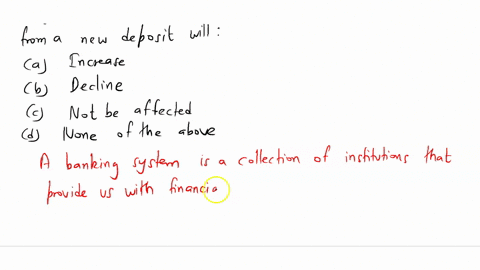 from a new deposit will :
(a) Increase
(b) Decline
(c) Not be affected
(d) None of the above
A banking system is a collection of institutions that
provide us with financia